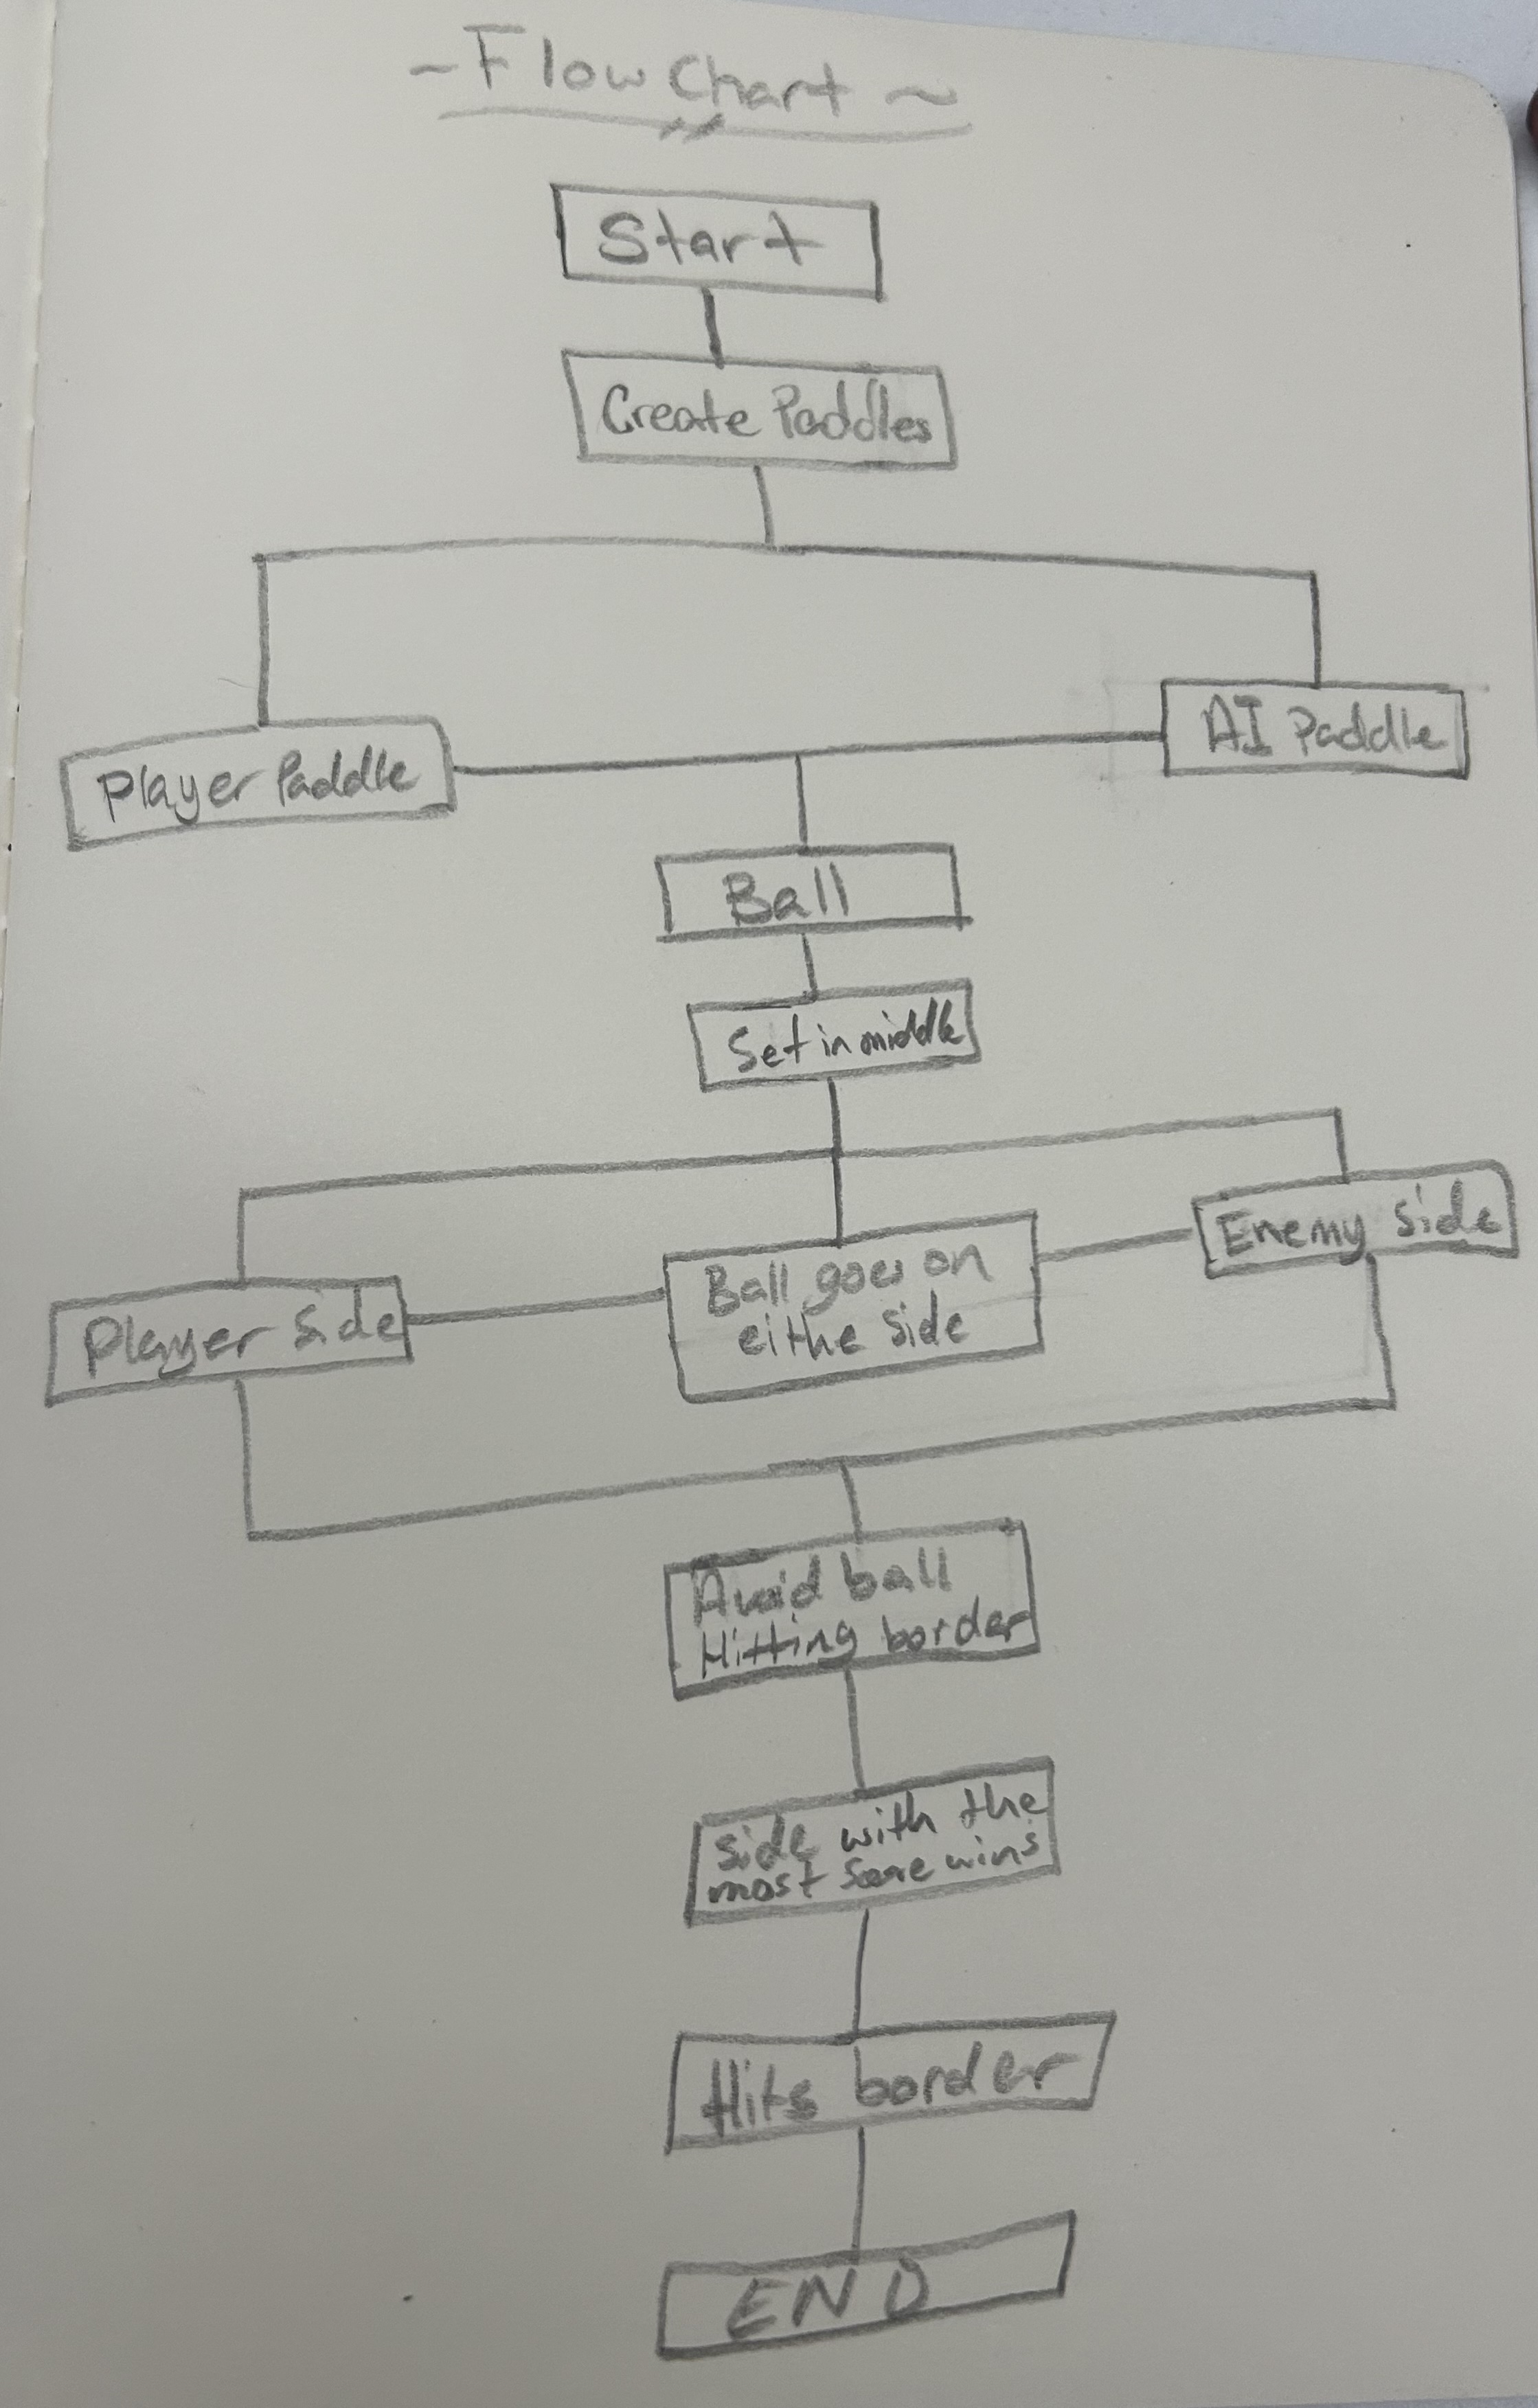 ~ Flow Chart ~
Start
Create Paddles
Player Paddle
AI Paddle
Ball
Set in middle
Player Side
Ball goes on
eithe side
Enemy Side
Avoid ball
Hitting border
Side with the
most score wins
Hits border
END